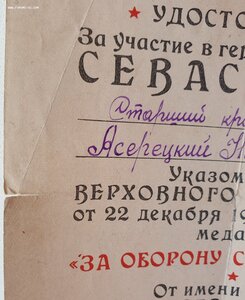 ★ УДОСТО
За участие в гер
СЕВАС
Старший кра
Асерецкий Н
Указом
ВЕРХОВНОГО
от 22 декабря 19
меда
«ЗА ОБОРОНУ С
От имени